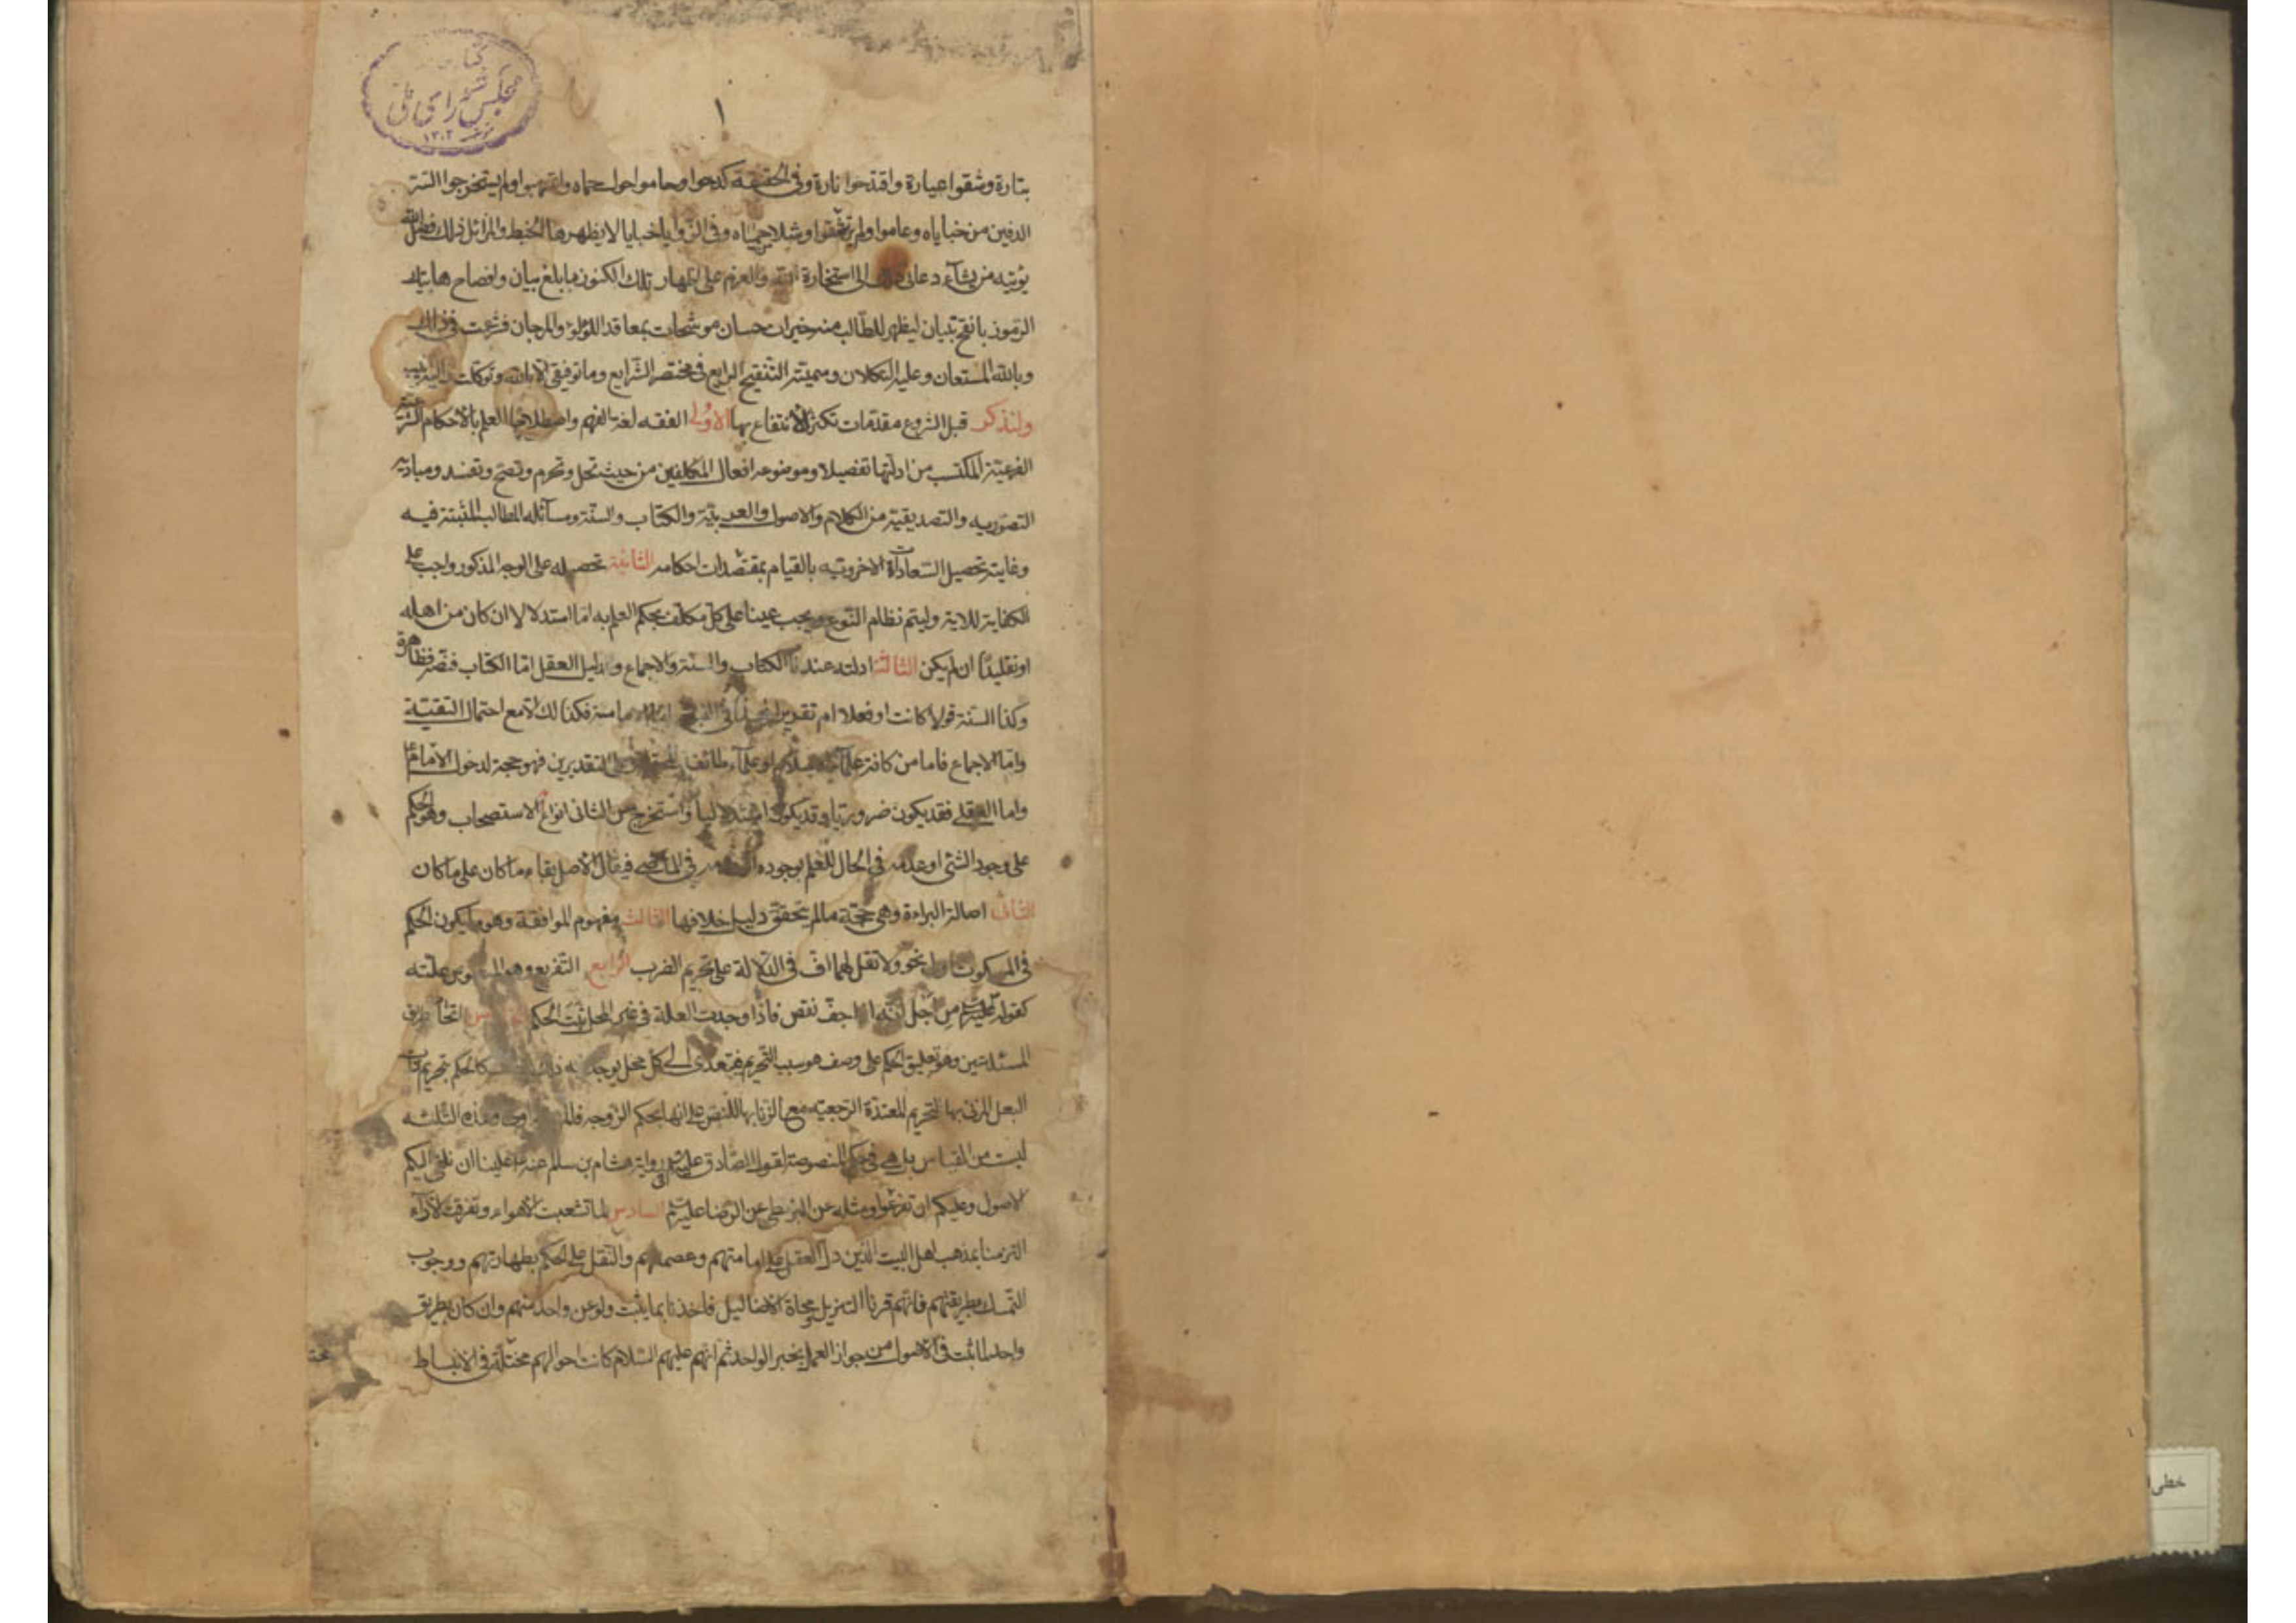 كتابخانه
مجلس شورای ملی
۱۳۰۲
١
بتارة وشقوا عبارة واقتدحوا نارة وفى الحقيقة كدحوا وحاموا حول حماه واقتربوا ولم يستخرجوا السر
الدفين من خباياه وعاموا ولم وفى الزوايا خبايا لا يظهرها الخبط والمرائل ذلك فضل الله
يؤتيه من يشاء دعانى ذلك الى استخارة الله والعزم على اظهار تلك الكنوز بابلغ بيان وافصاح هاتيك
الرموز بانقح تبيان ليظهر للطالب منه خيرات حسان موشحات بمعاقد اللؤلؤ والمرجان فشرعت فى ذلك
وبالله المستعان وعليه التكلان وسميته التنقيح الرايع فى مختصر الشرايع وما توفيقى الا بالله عليه توكلت واليه انيب
ولنذكر قبل الشروع مقدمات تكثر الانتفاع بها الاولى الفقه لغة الفهم واصطلاحا العلم بالاحكام الشرعية
الفرعية المكتسب من ادلتها تفصيلا وموضوعه افعال المكلفين من حيث تحل وتحرم وتصح وتفسد ومباديه
التصوريه والتصديقية من الكلام والاصول والعربية والكتاب والسنة ومسآئله المطالب المثبتة فيه
وغايته تحصيل السعادات الاخرويه بالقيام بمقتضيات احكامه الثانية تحصيله على الوجه المذكور واجب على
الكفاية للاية وليتم نظام النوع ويجب عينا على كل مكلف بحكم العلم به اما استدلالا ان كان من اهله
او تقليدا ان لم يكن الثالثة ادلته عندنا الكتاب والسنة والاجماع ودليل العقل اما الكتاب فنصه فظاهره
وكذا السنة قولا كانت او فعلا ام تقريرا فكذلك لا مع احتمال التقية
واما الاجماع فاما من كافة علمآء او علمآء طائفة التقديرين فهو حجة لدخول الامام ع
واما العقلى فقد يكون ضروريا وقد يكون استدلاليا واستخرج من الثانى انواع الاستصحاب وهو الحكم
على وجود الشئ او عدمه فى الحال للعلم بوجوده فى الماضى فيقال الاصل بقاء ما كان على ما كان
الثانى اصالة البراءة وهى حجة ما لم يتحقق دليل خلافها الثالث مفهوم الموافقة وهو ما يكون الحكم
فى المسكوت نحو ولا تقل لهما اف فى الدلالة على تحريم الضرب الرابع التفريع وهو علته
كقوله عليه السلم من اجل انه اذا جف نقص فاذا وجدت العلة فى غير المحل ثبت الحكم الخامس اتحاد طريق
المسئلتين وهو تعليق الحكم على وصف هو سبب التحريم فيتعدى الى كل محل يوجد فيه ذلك كالحكم بتحريم ذات
البعل المزنى بها لتحريم المعتدة الرجعية مع الزنا بها للنص على انها بحكم الزوجه وهذه الثلثه
ليست من القياس بل هى فى حكم المنصوصة لقول الصادق عليه السلم فى رواية هشام بن سالم عنه ع علينا ان نلقى اليكم
الاصول وعليكم ان تفرعوا ومثله عن البزنطى عن الرضا عليه السلم السادس لما تشعبت الاهواء وتفرقت الآراء
التزمنا بمذهب اهل البيت الذين دل العقل على امامتهم وعصمتهم والنقل على الحكم بطهارتهم ووجوب
التمسك بطريقتهم فانهم قرناء التنزيل ومحاة الاضاليل فاخذنا بما يثبت ولو عن واحد منهم وان كان بطريق
واحد لما ثبت فى الاصول من جواز العمل بخبر الواحد ثم انهم عليهم السلام كانت احوالهم مختلفة فى الانبساط
خطى